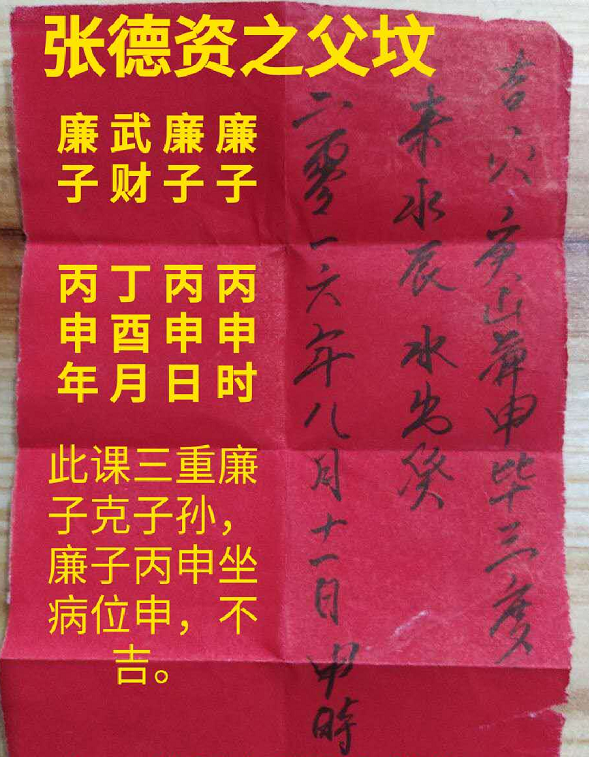 张德资之父坟
廉子
武财
廉子
廉子
丙申年
丁酉月
丙申日
丙申时
此课三重廉
子克子孙，
廉子丙申坐
病位申，不
吉。
吉穴庚山兼申毕三度
来水辰 水出癸
二零一六年八月十一日 申時